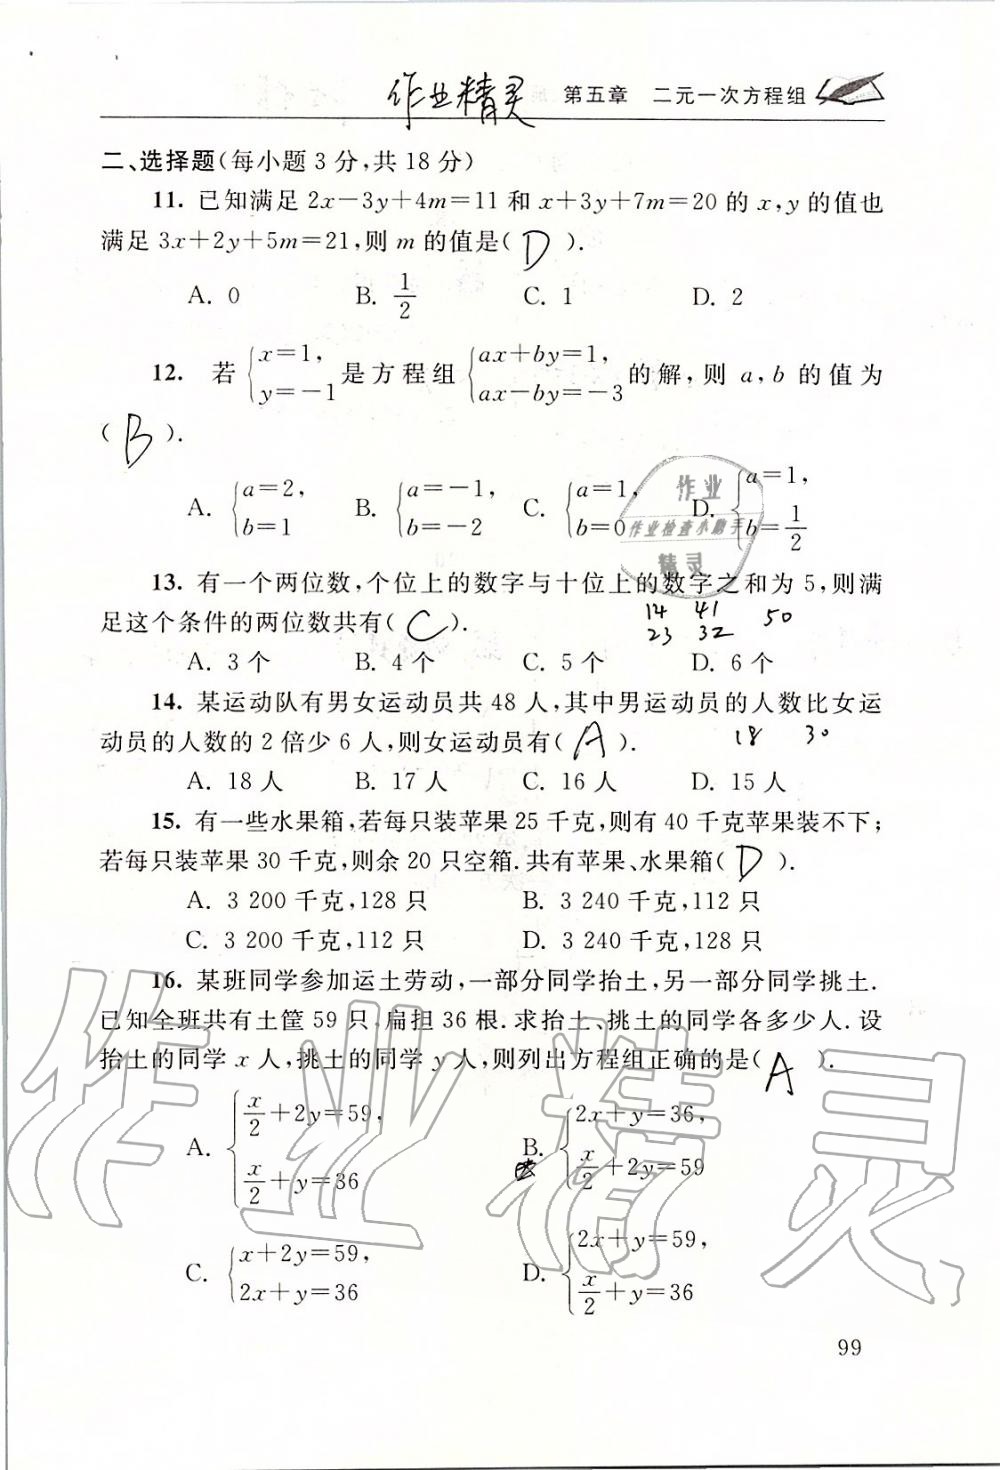 作业精灵 第五章 二元一次方程组
二、选择题(每小题3分,共18分)
11. 已知满足 2x－3y＋4m＝11 和 x＋3y＋7m＝20 的 x,y 的值也
满足 3x＋2y＋5m＝21,则 m 的值是( D ).
A. 0 B. 1/2 C. 1 D. 2
12. 若 {x＝1, y＝－1 是方程组 {ax＋by＝1, ax－by＝－3 的解,则 a,b 的值为
( B ).
A. {a＝2, b＝1 B. {a＝－1, b＝－2 C. {a＝1, b＝0 D. {a＝1, b＝1/2
作业
作业检查小助手
精灵
13. 有一个两位数,个位上的数字与十位上的数字之和为5,则满
足这个条件的两位数共有( C ).
14 41 50
23 32
A. 3个 B. 4个 C. 5个 D. 6个
14. 某运动队有男女运动员共48人,其中男运动员的人数比女运
动员的人数的2倍少6人,则女运动员有( A ). 18 30
A. 18人 B. 17人 C. 16人 D. 15人
15. 有一些水果箱,若每只装苹果25千克,则有40千克苹果装不下;
若每只装苹果30千克,则余20只空箱.共有苹果、水果箱( D ).
A. 3 200千克,128只 B. 3 240千克,112只
C. 3 200千克,112只 D. 3 240千克,128只
16. 某班同学参加运土劳动,一部分同学抬土,另一部分同学挑土.
已知全班共有土筐59只,扁担36根.求抬土、挑土的同学各多少人.设
抬土的同学 x 人,挑土的同学 y 人,则列出方程组正确的是( A ).
A. {x/2＋2y＝59, x/2＋y＝36 B. {2x＋y＝36, x/2＋2y＝59
C. {x＋2y＝59, 2x＋y＝36 D. {2x＋y＝59, x/2＋y＝36
作业精灵
99